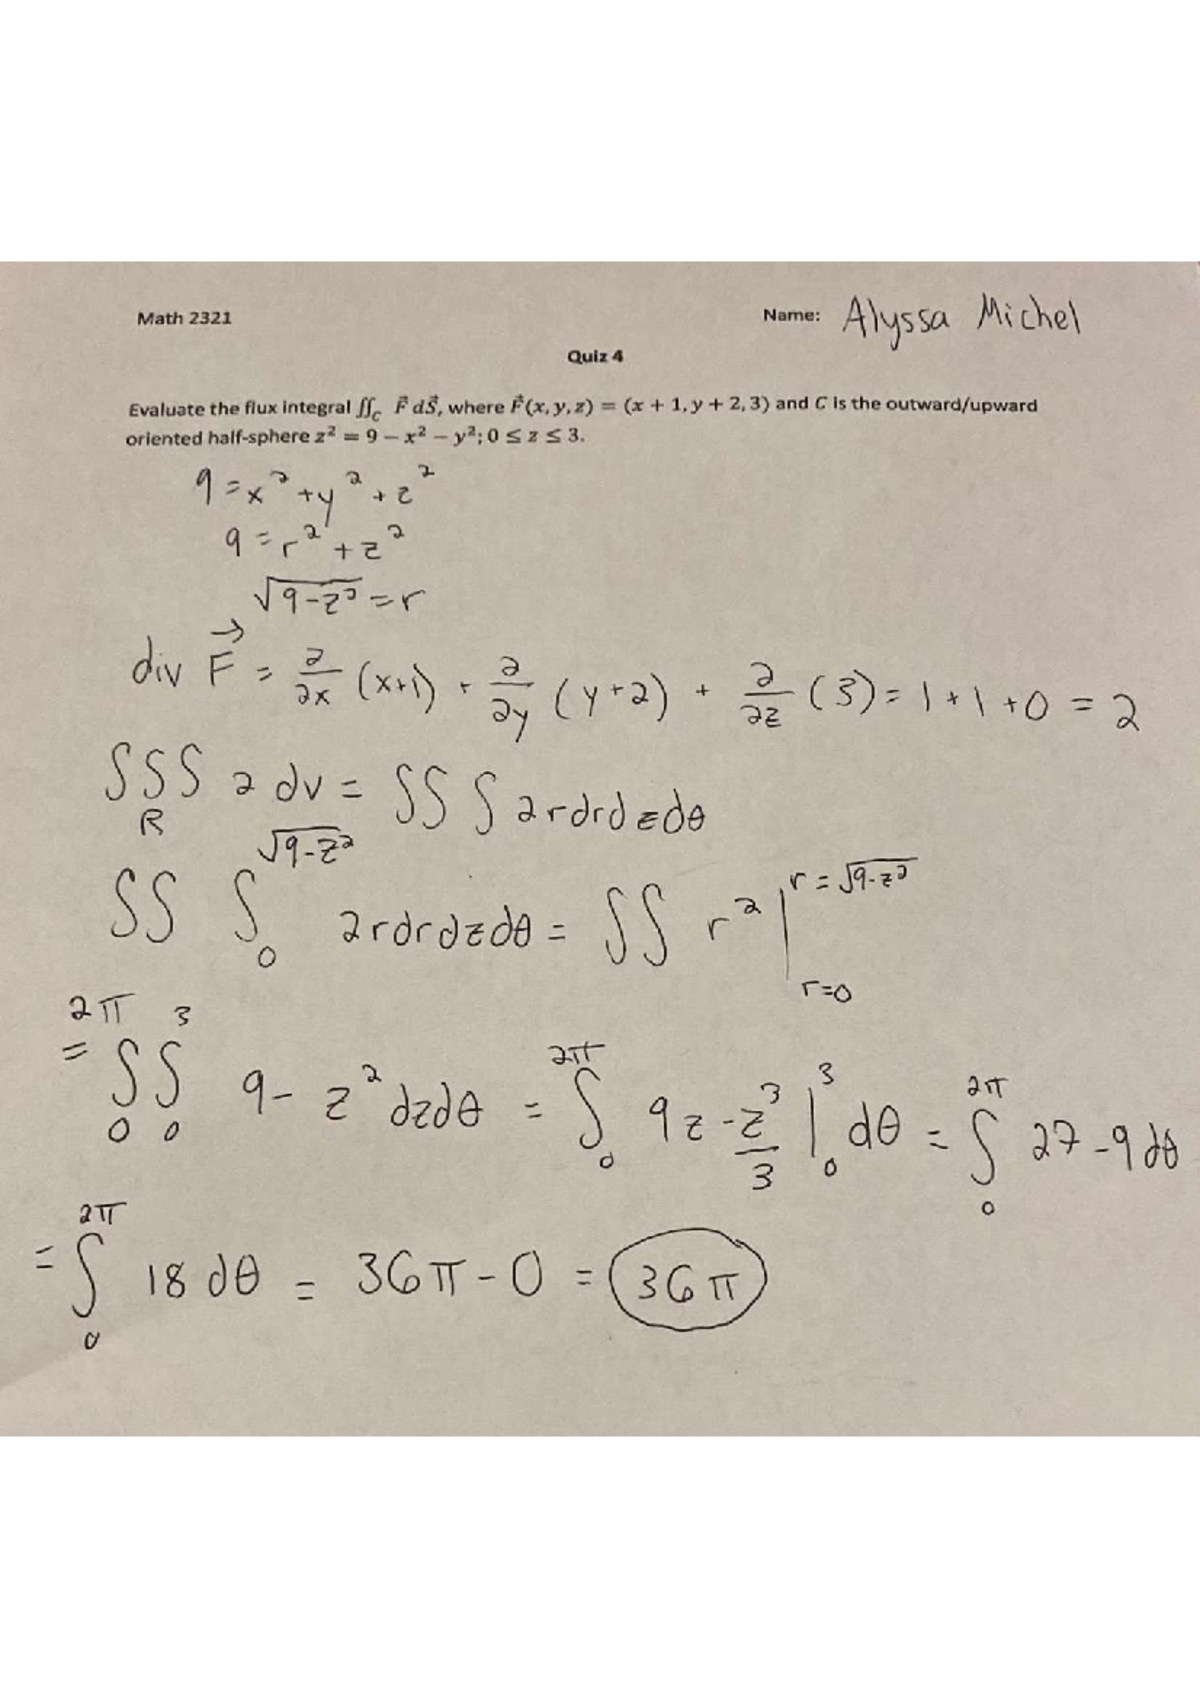 Math 2321 Name: Alyssa Michel
Quiz 4
Evaluate the flux integral ∬_C F⃗ dS⃗, where F⃗(x, y, z) = (x + 1, y + 2, 3) and C is the outward/upward
oriented half-sphere z² = 9 − x² − y²; 0 ≤ z ≤ 3.
9 = x² + y² + z²
9 = r² + z²
√(9-z²) = r
div F⃗ = ∂/∂x (x+1) + ∂/∂y (y+2) + ∂/∂z (3) = 1 + 1 + 0 = 2
∫∫∫_R 2 dv = ∫∫∫ 2rdrdzdθ
∫∫∫_0^√(9-z²) 2rdrdzdθ = ∫∫ r² |_{r=0}^{r=√(9-z²)}
= ∫_0^2π ∫_0^3 9 - z² dzdθ = ∫_0^2π 9z - z³/3 |_0^3 dθ = ∫_0^2π 27 - 9 dθ
= ∫_0^2π 18 dθ = 36π - 0 = 36π